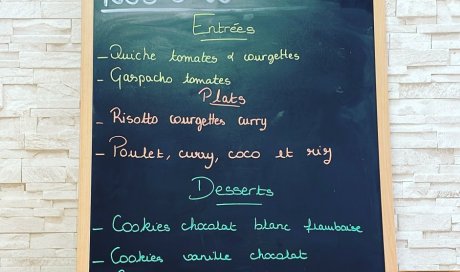 Entrées
- Quiche tomates & courgettes
- Gaspacho tomates
Plats
- Risotto courgettes curry
- Poulet, curry, coco et riz
Desserts
- Cookies chocolat blanc framboise
- Cookies vanille chocolat